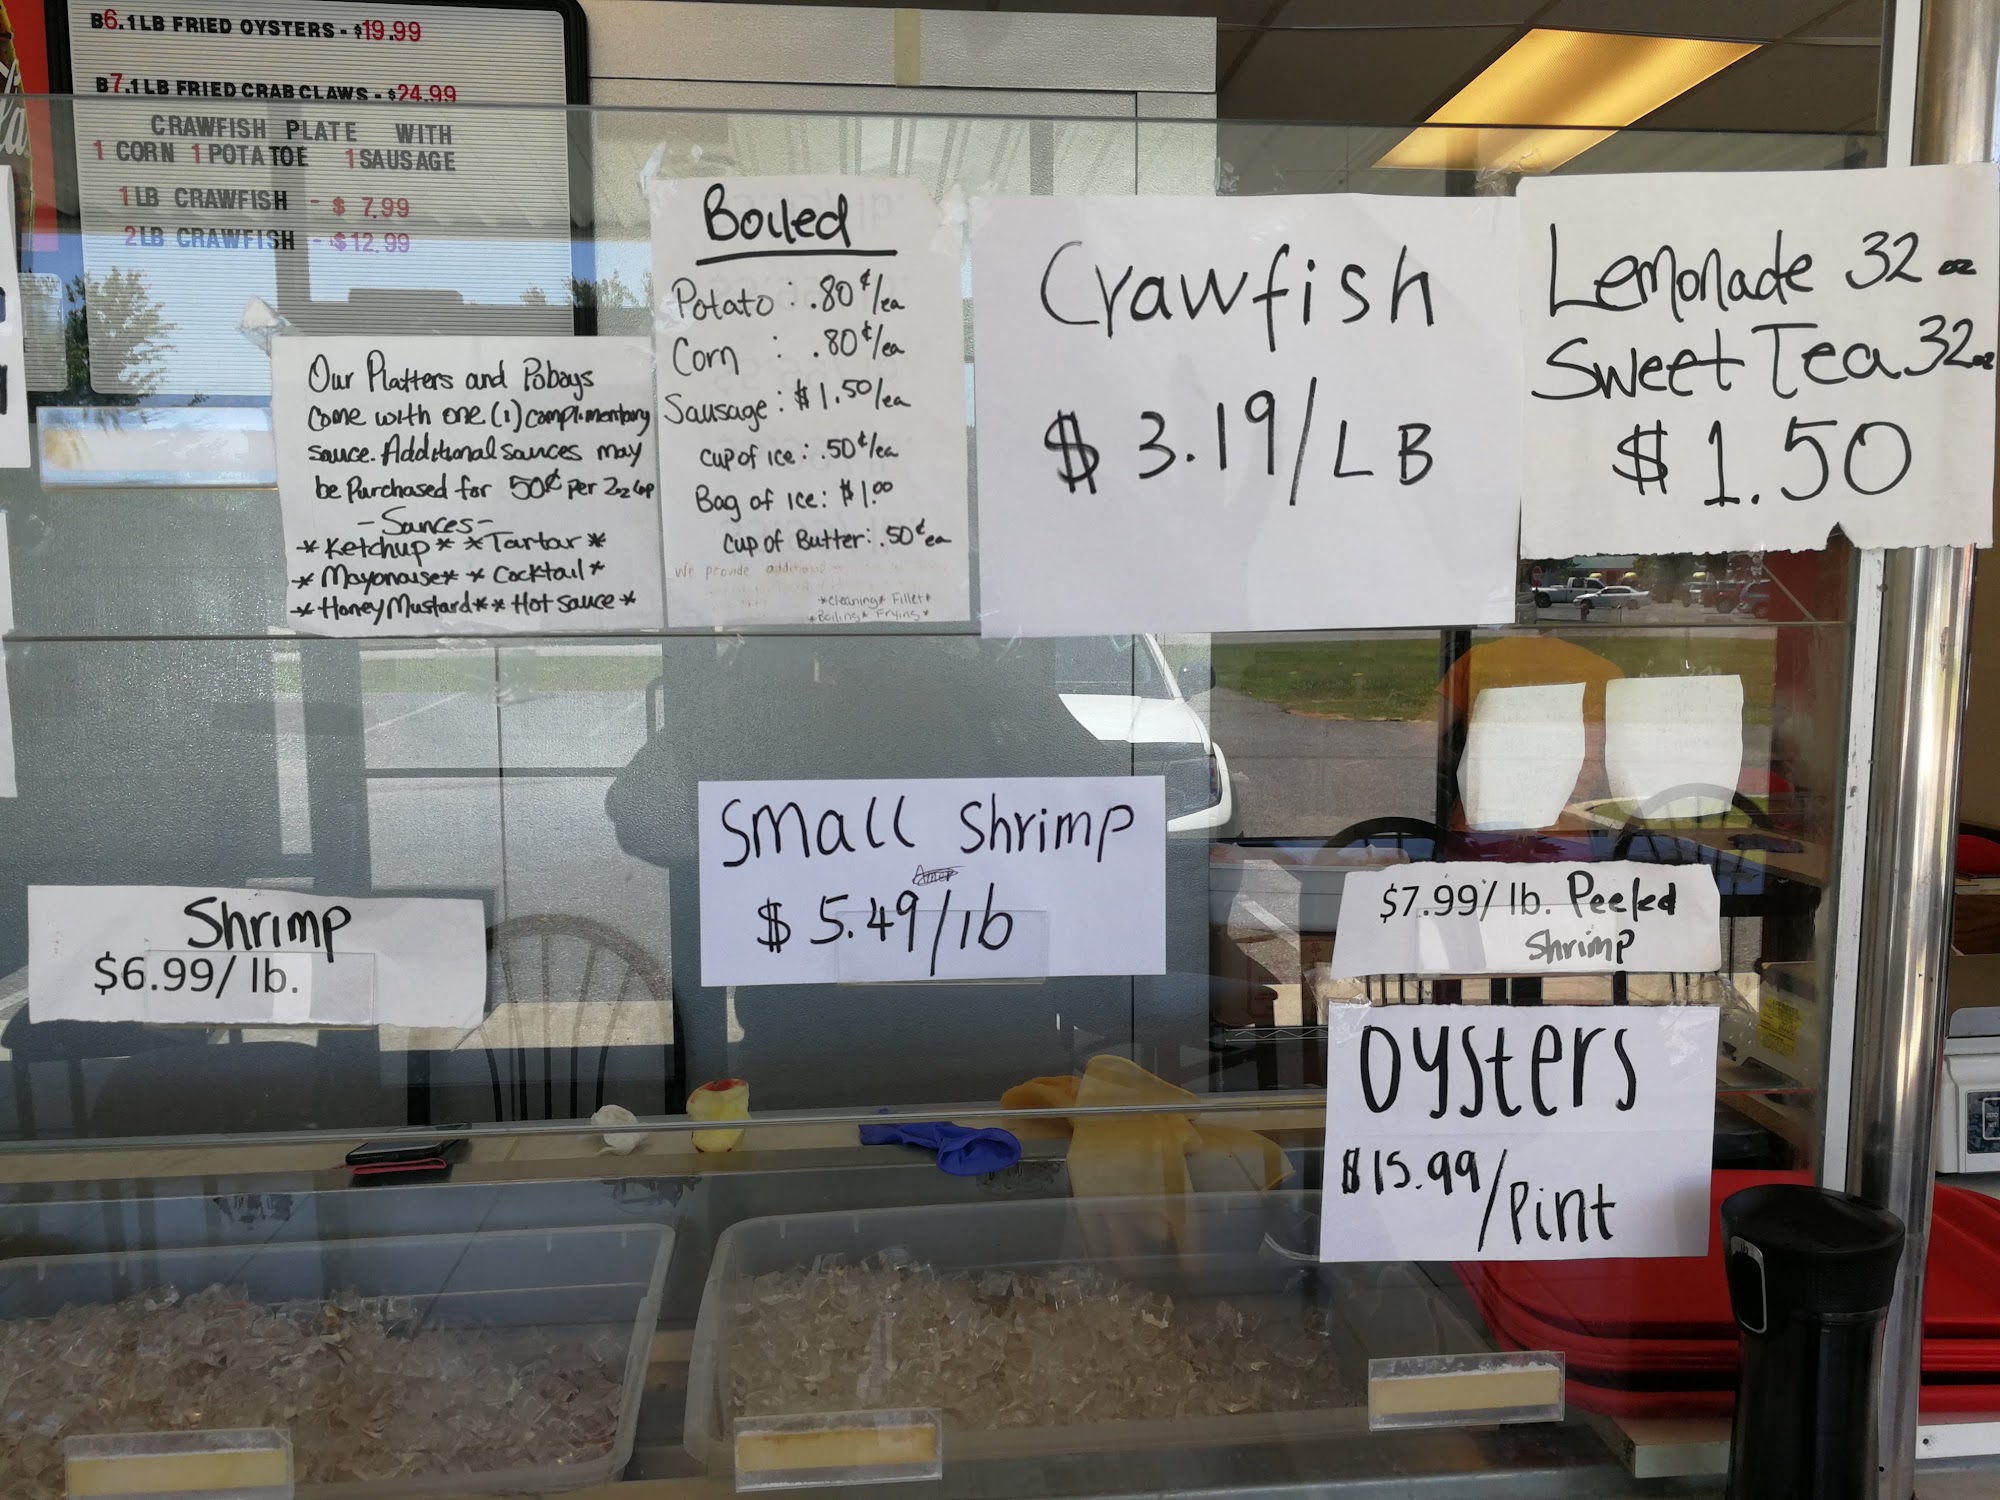 B6.1LB FRIED OYSTERS - $19.99
B7.1LB FRIED CRAB CLAWS - $24.99
CRAWFISH PLATE WITH
1 CORN 1 POTATOE 1 SAUSAGE
1LB CRAWFISH - $ 7.99
2LB CRAWFISH - $12.99
Our Platters and Poboys
come with one (1) complimentary
sauce. Additional sauces may
be Purchased for 50¢ per 2oz cup
- Sauces -
*Ketchup* *Tartar*
*Mayonaise* *Cocktail*
*Honey Mustard* *Hot Sauce*
Boiled
Potato : .80¢/ea
Corn : .80¢/ea
Sausage : $1.50/ea
cup of ice : .50¢/ea
Bag of ice : $1.00
cup of Butter : .50¢ ea
We provide additional
*Cleaning* Fillet*
*Boiling* Frying*
Crawfish
$3.19/LB
Lemonade 32 oz
Sweet Tea 32 oz
$1.50
Shrimp
$6.99/ lb.
Small Shrimp
$5.49/lb
$7.99/ lb. Peeled
Shrimp
Oysters
$15.99/Pint